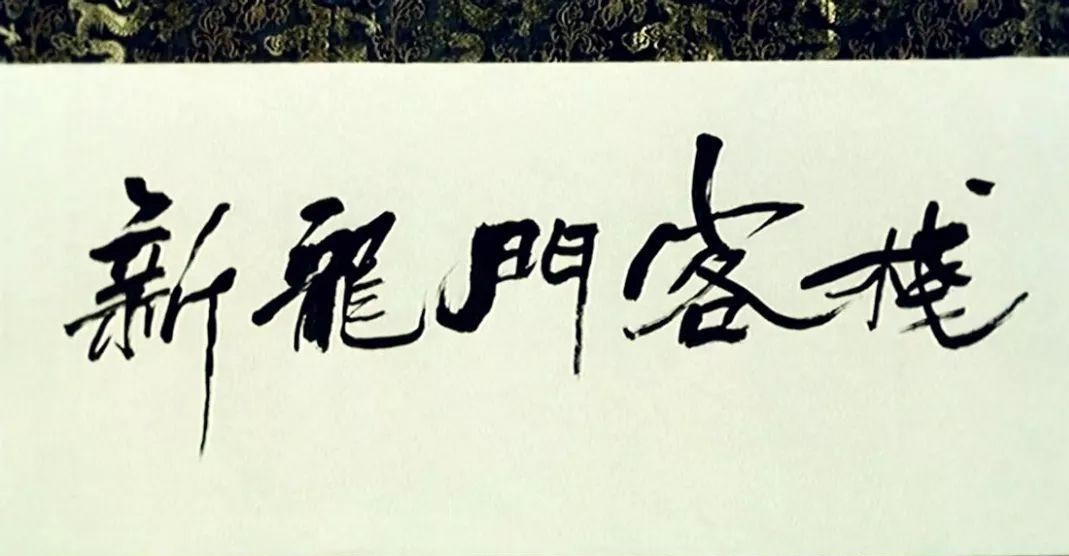 新龍門客棧